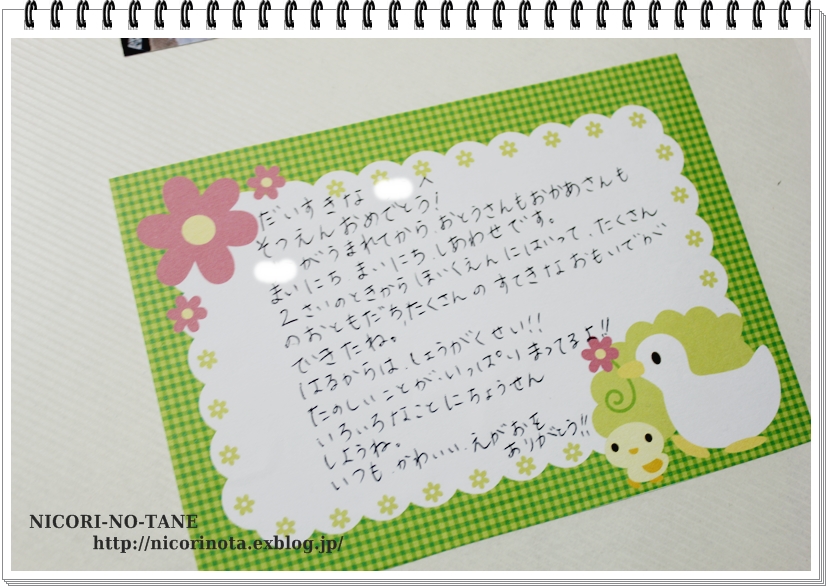 だいすきな　　へ
そつえんおめでとう！
がうまれてから、おとうさんもおかあさんも
まいにち まいにち しあわせです。
2さいのときから ほいくえんにはいって、たくさん
のおともだち、たくさんの すてきな おもいでが
できたね。
はるからは、しょうがくせい!!
たのしいことが、いっぱいまってるよ!!
いろいろなことにちょうせん
しようね。
いつも かわいい えがおを
ありがとう!!
NICORI-NO-TANE
http://nicorinota.exblog.jp/